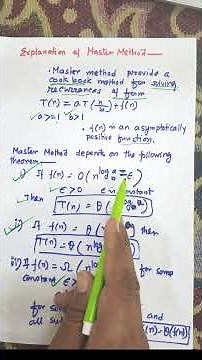 Explanation of Master Method
• Master method provide a
cook book method for solving
recurrences of form
T(n) = aT(n/b) + f(n)
a>=1 b>1
• f(n) is an asymptotically
positive function.
Master Method depends on the following
theorem
i) If f(n) = O(n^log_b a - ε)
ε>0 ε is constant
Then T(n) = Θ(n^log_b a)
ii) If f(n) =
then T(n) = Θ(n^log
iii) If f(n) = Ω(n for some
constant ε>
for and
all su = Θ(f(n))